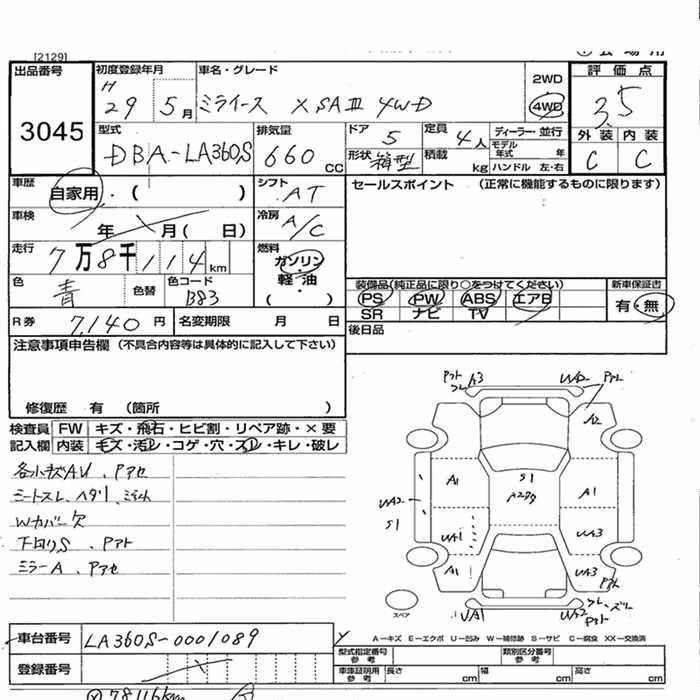 [2129]
出品番号 初度登録年月 車名・グレード 2WD 評価点
3045 H 29 5月 ミライース X SAⅢ 4WD 4WD 3.5
型式 排気量 ドア 定員 ディーラー・並行 外装 内装
DBA-LA360S 660 cc 5 4人 モデル年式 年 C C
形状 箱型 積載 kg ハンドル 左・右
車歴 自家用・( ) シフト AT セールスポイント (正常に機能するものに限ります)
車検 年 月( 日) 冷房 A/C
走行 7万8千114km 燃料 ガソリン・軽油・( )
色 青 色替 色コード B83 装備品(純正品に限り○をつけてください) 新車保証書
PS PW ABS エアB 有・無
SR ナビ TV
R券 7,140円 名変期限 月 日 後日品
注意事項申告欄 (不具合内容等は具体的に記入して下さい)
修復歴 有 (箇所 )
検査員 FW キズ・飛石・ヒビ割・リペア跡・×要
記入欄 内装 キズ・汚レ・コゲ・穴・スレ・キレ・破レ
各小キズAU、Pアセ
シートスレ、ヘタリ
Wカバー欠
下回りS、Pアト
ミラーA、Pアセ
Pアト A3 UA2 Pアト
A2
A1 S1 A1
A2
UA2
S1 UA1 UA3
A1 UA3
Pアト
スペア UA1 UA2 Pアト スレ
A－キズ E－エクボ U－凹み W－補修跡 S－サビ C－腐食 XX－交換済
車台番号 LA360S-0001089 型式指定番号 参考 類別区分番号 参考
登録番号 車庫証明用 参考 長さ cm 幅 cm 高さ cm
78116km